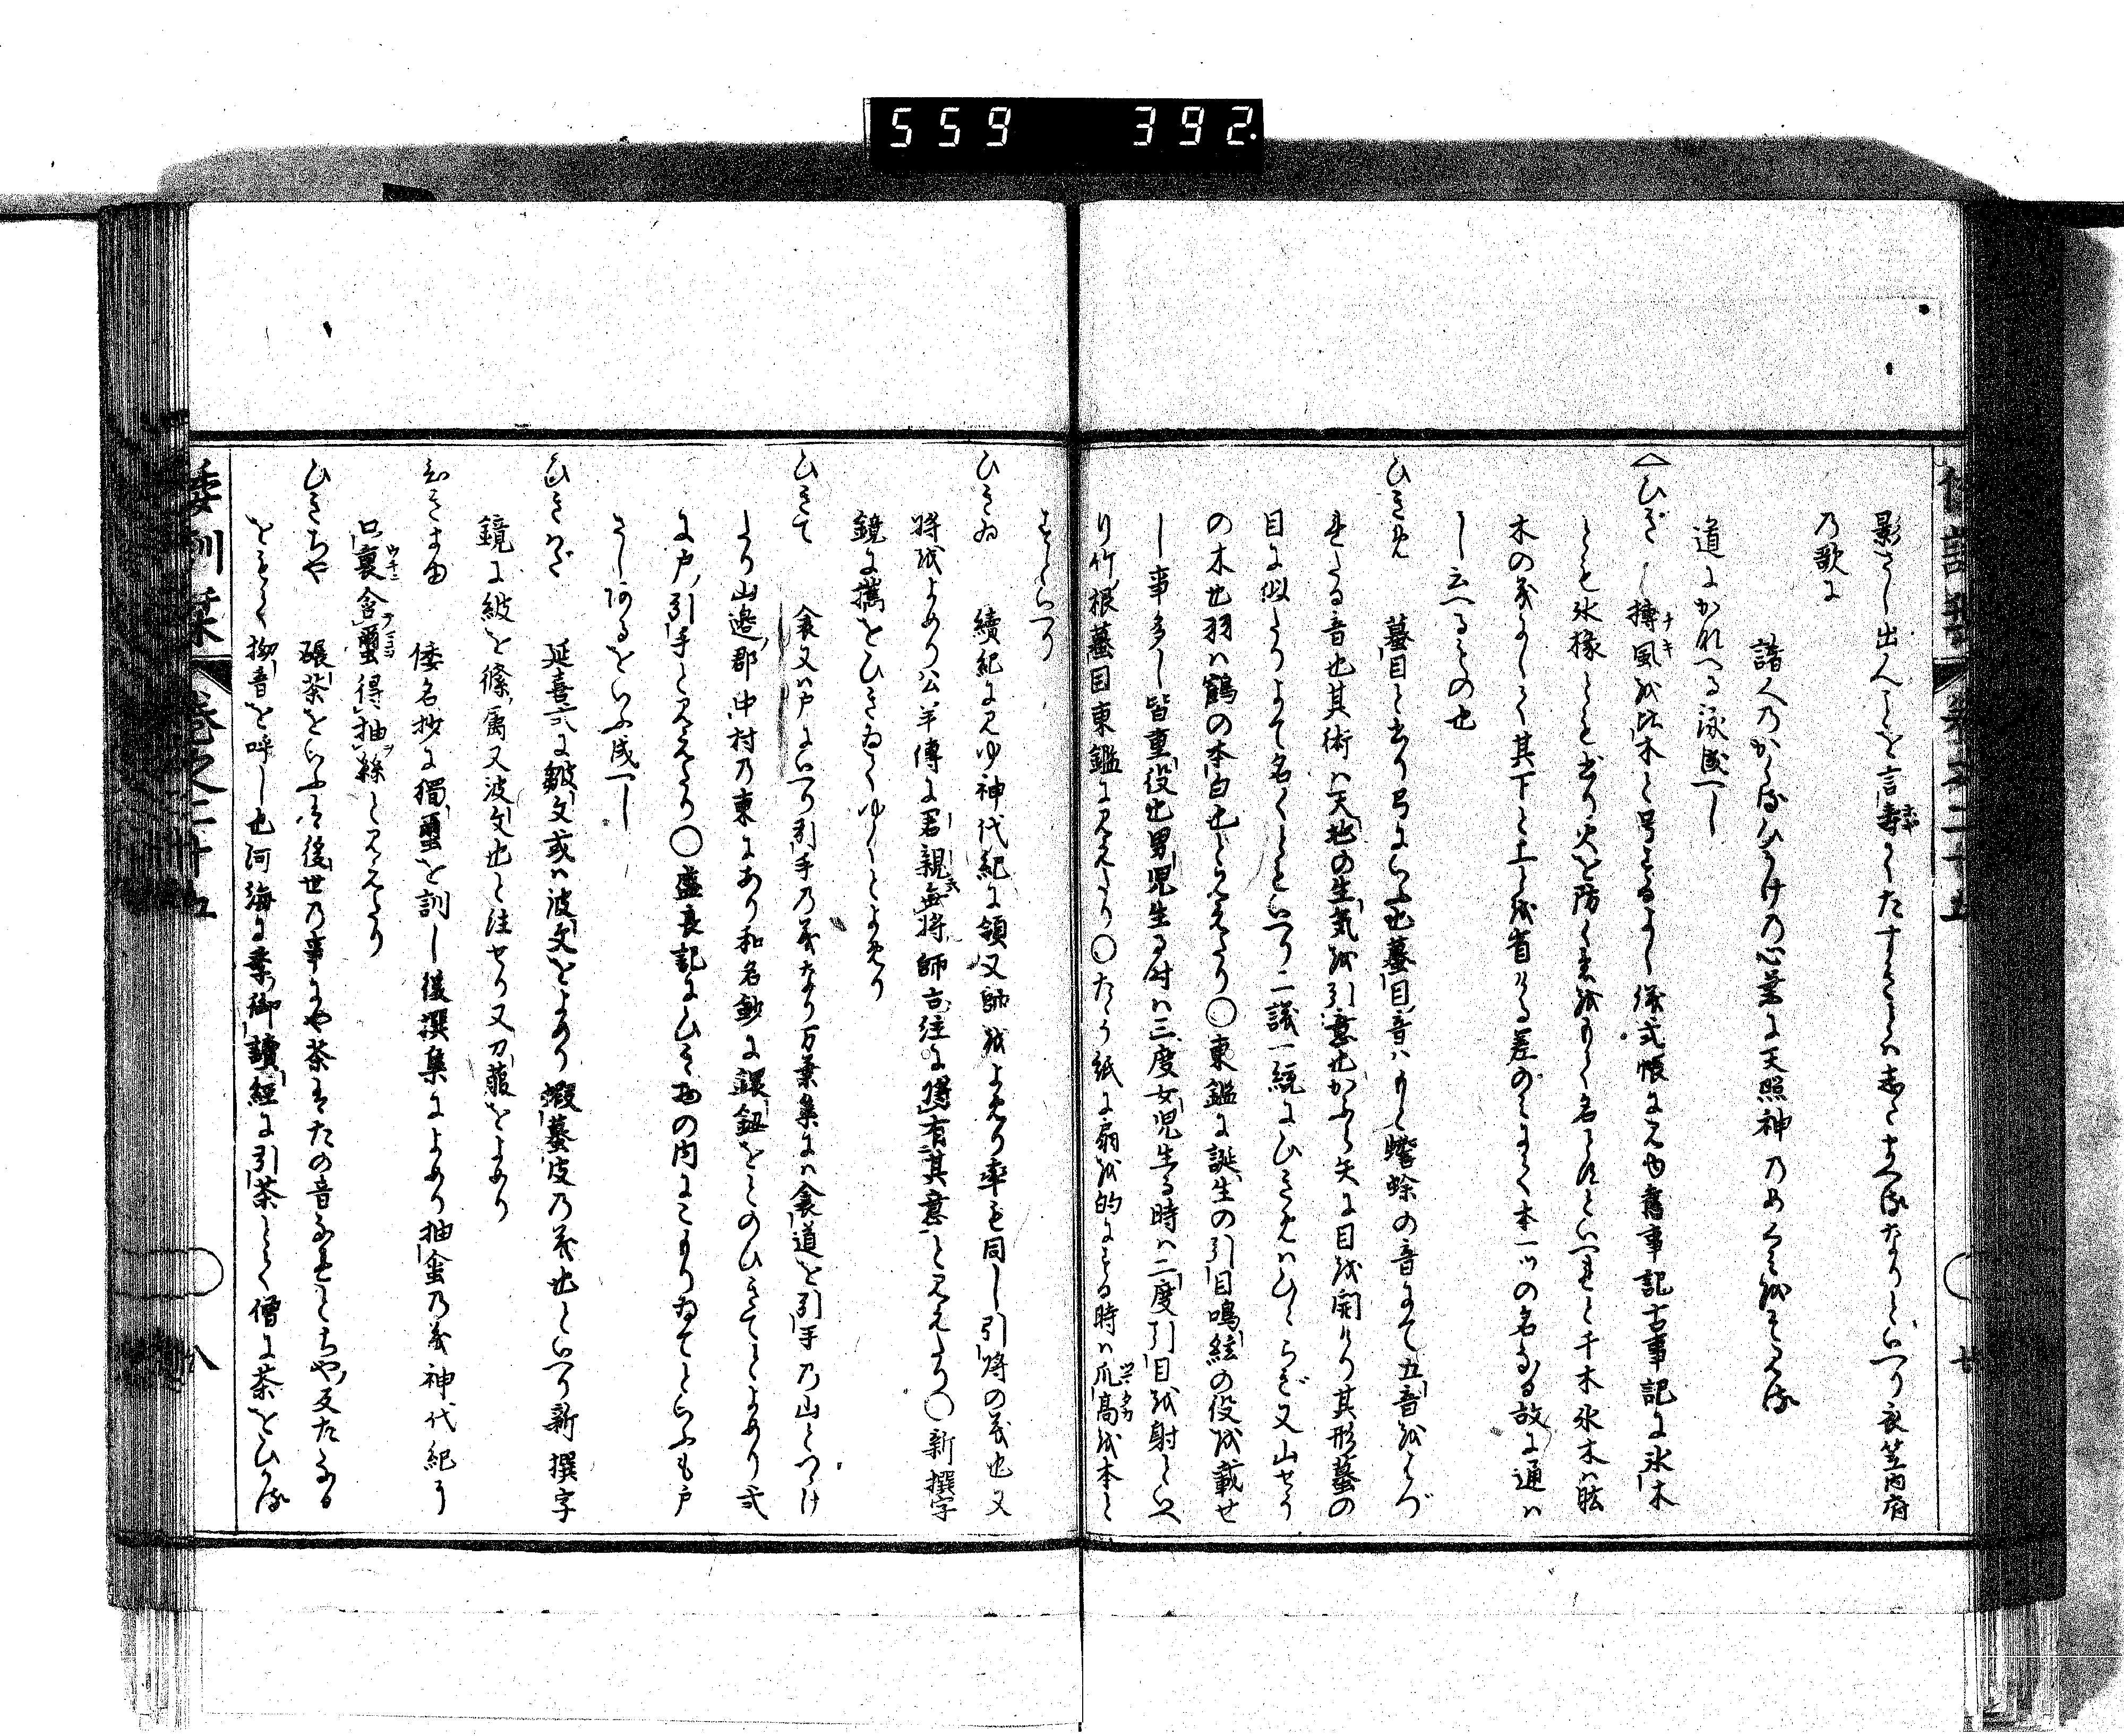 559 392
影さし出んことを言寿くたすきとハ
乃歌に
諸人のかくるひかけの心葉に天照神のめくみをそしる
道にかれへる詠成へし
△ひぎ 搏風を比木と号するよし儀式帳に見ゆ旧事記古事記に氷木
とも氷椽とも書り火を防く意をもて名とすといへれと千木氷木ハ
木の義よしく其下と上を省ける差のみにて本一ツの名なる故に通ハ
し云へるもの也
ひきめ 蟇目と書り弓にいふ也蟇目音ハもと蟾蜍の音にて五音をとづ
れる音也其術ハ天地の生気を引意也かふら矢に目を開けり其形蟇の
目に似たりよて名くともいへり二議一統にひきめハひゝらぎ又山せり
の木也羽ハ鶴の本白也と見えたり○東鑑に誕生の引目鳴絃の役を載せ
し事多し皆重役也男児生る时ハ三度女児生る時ハ二度引目を射といへ
り竹根蟇目東鑑に見えたり○たゝう紙に扇を的にする時ハ爪高を本と
すといへり
ひきゐ 續紀に見ゆ神代紀に領又師をよめり率も同し引将の義也又
将をよめり公羊傳に君親無将師古注に将有其意と見えたり○新撰字
鏡に攜をひきゐてゆくとよめり
ひきて 衾又ハ戸にいへり引手の義なり万葉集にハ衾道を引手乃山とつゝけ
たり山邊郡中村の東にあり和名鈔に鐶鈕をとのひきてとよめり式
に戸引手と見えたり○盛衰記にひき物の内にこもりゐてといふも戸
さしあるをいふ成へし
ひきはだ 延喜式に皺文或ハ波文をよめり蝦蟇皮の義也といへり新撰字
鏡に紋を篠属又波文也と注せり又刀葅をよめり
ひきまゆ 倭名抄に獨繭を訓し後撰集によめり抽蚕の義神代紀に
口裏含蠒得抽絲と見えたり
ひきちや 碾茶をいふハ後世の事にや茶ハたの音なれともちや又たなる
をもて拗音を呼し也河海に季御讀經に引茶とて僧に茶をひかる
倭訓栞 巻之二十五 八